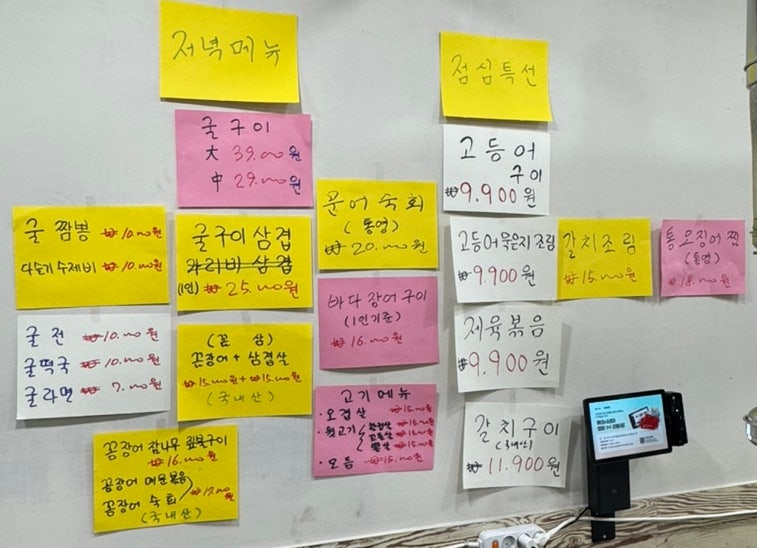 저녁메뉴
굴구이
大 39.000원
中 29.000원
굴 짬뽕 ₩10.000원
수제비 ₩10.000원
굴전 ₩10.000원
굴떡국 ₩10.000원
굴라면 ₩7.000원
굴구이삼겹
가리비 삼겹
(1인) ₩25.000원
(꼼 삼)
꼼장어+삼겹살
₩15.000원+₩15.000원
(국내산)
꼼장어 참나무 료불구이
₩16.000원
꼼장어 매운볶음
꼼장어 숙회 ₩17.000원
(국내산)
문어숙회
(통영)
₩20.000원
바다장어구이
(1인기준)
₩16.000원
고기메뉴
·오겹살 ₩15.000원
·뒷고기 ₩15.000원
₩15.000원
₩15.000원
₩15.000원
점심특선
고등어
구이
₩9.900원
고등어묵은지조림
₩9.900원
제육볶음
₩9.900원
갈치구이
₩11.900원
갈치조림
₩15.000원
통오징어찜
(통영)
₩18.000원